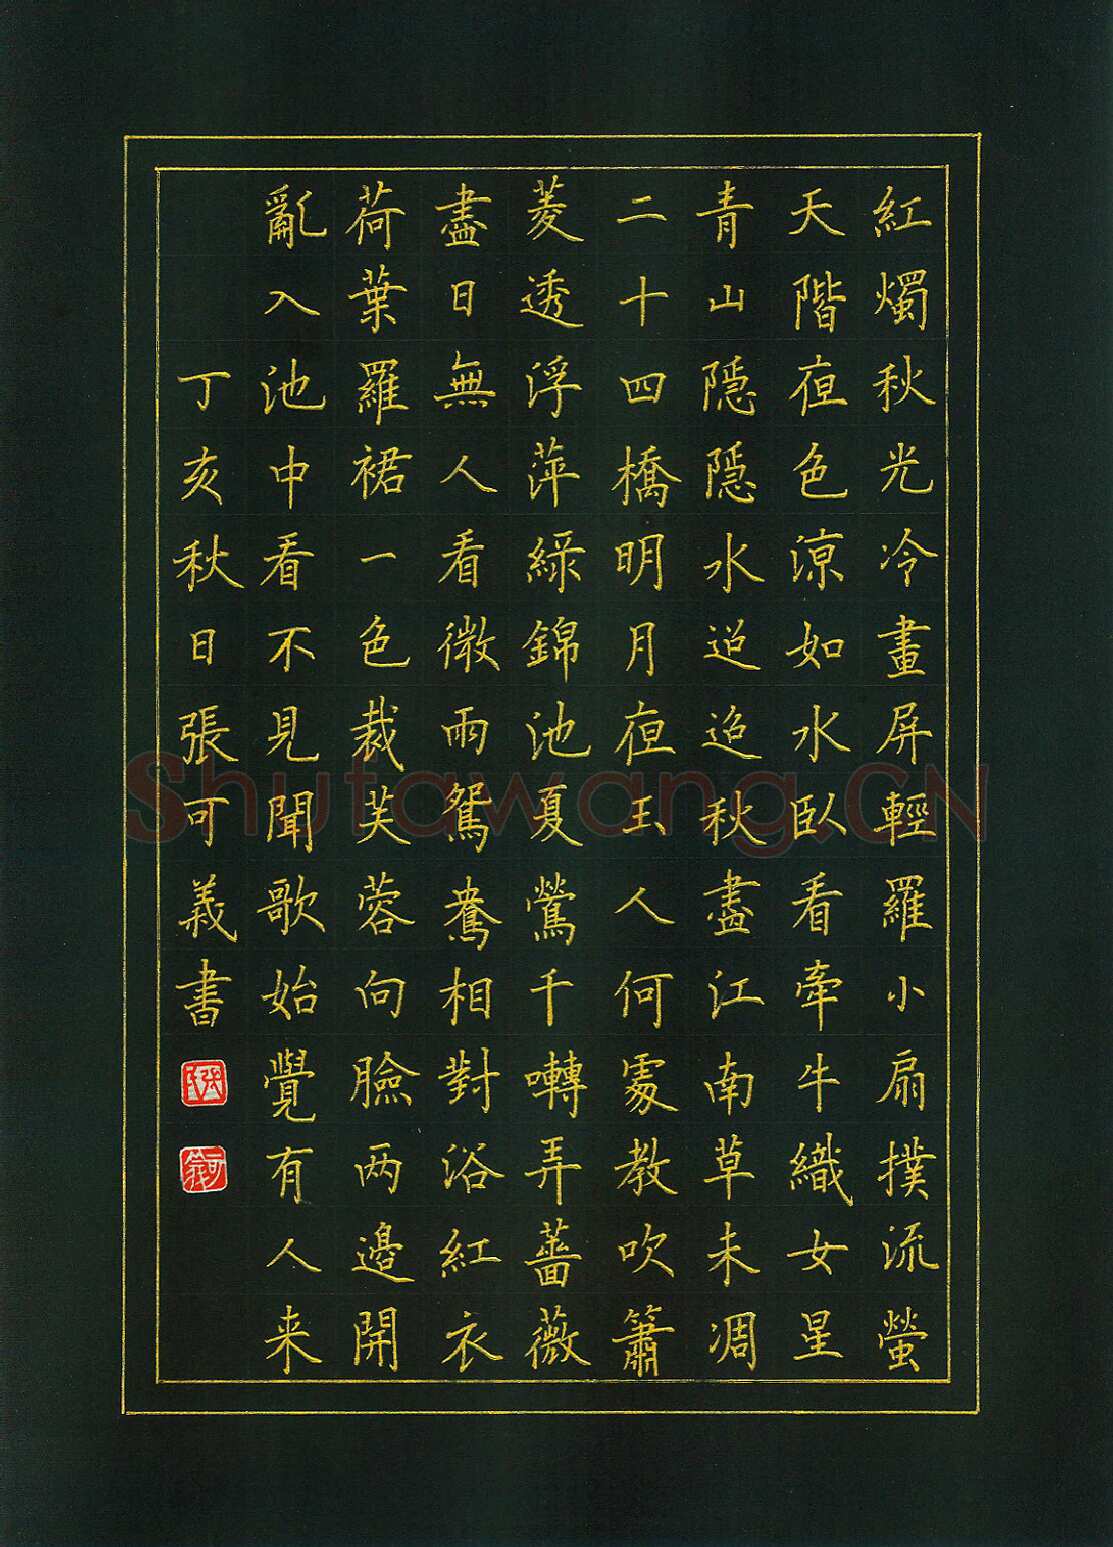 紅燭秋光冷畫屏輕羅小扇撲流螢
天階夜色涼如水臥看牽牛織女星
青山隱隱水迢迢秋盡江南草未凋
二十四橋明月夜玉人何處教吹簫
菱透浮萍綠錦池夏鶯千囀弄薔薇
盡日無人看微雨鴛鴦相對浴紅衣
荷葉羅裙一色裁芙蓉向臉兩邊開
亂入池中看不見聞歌始覺有人来
丁亥秋日張可義書
Shutawang.CN